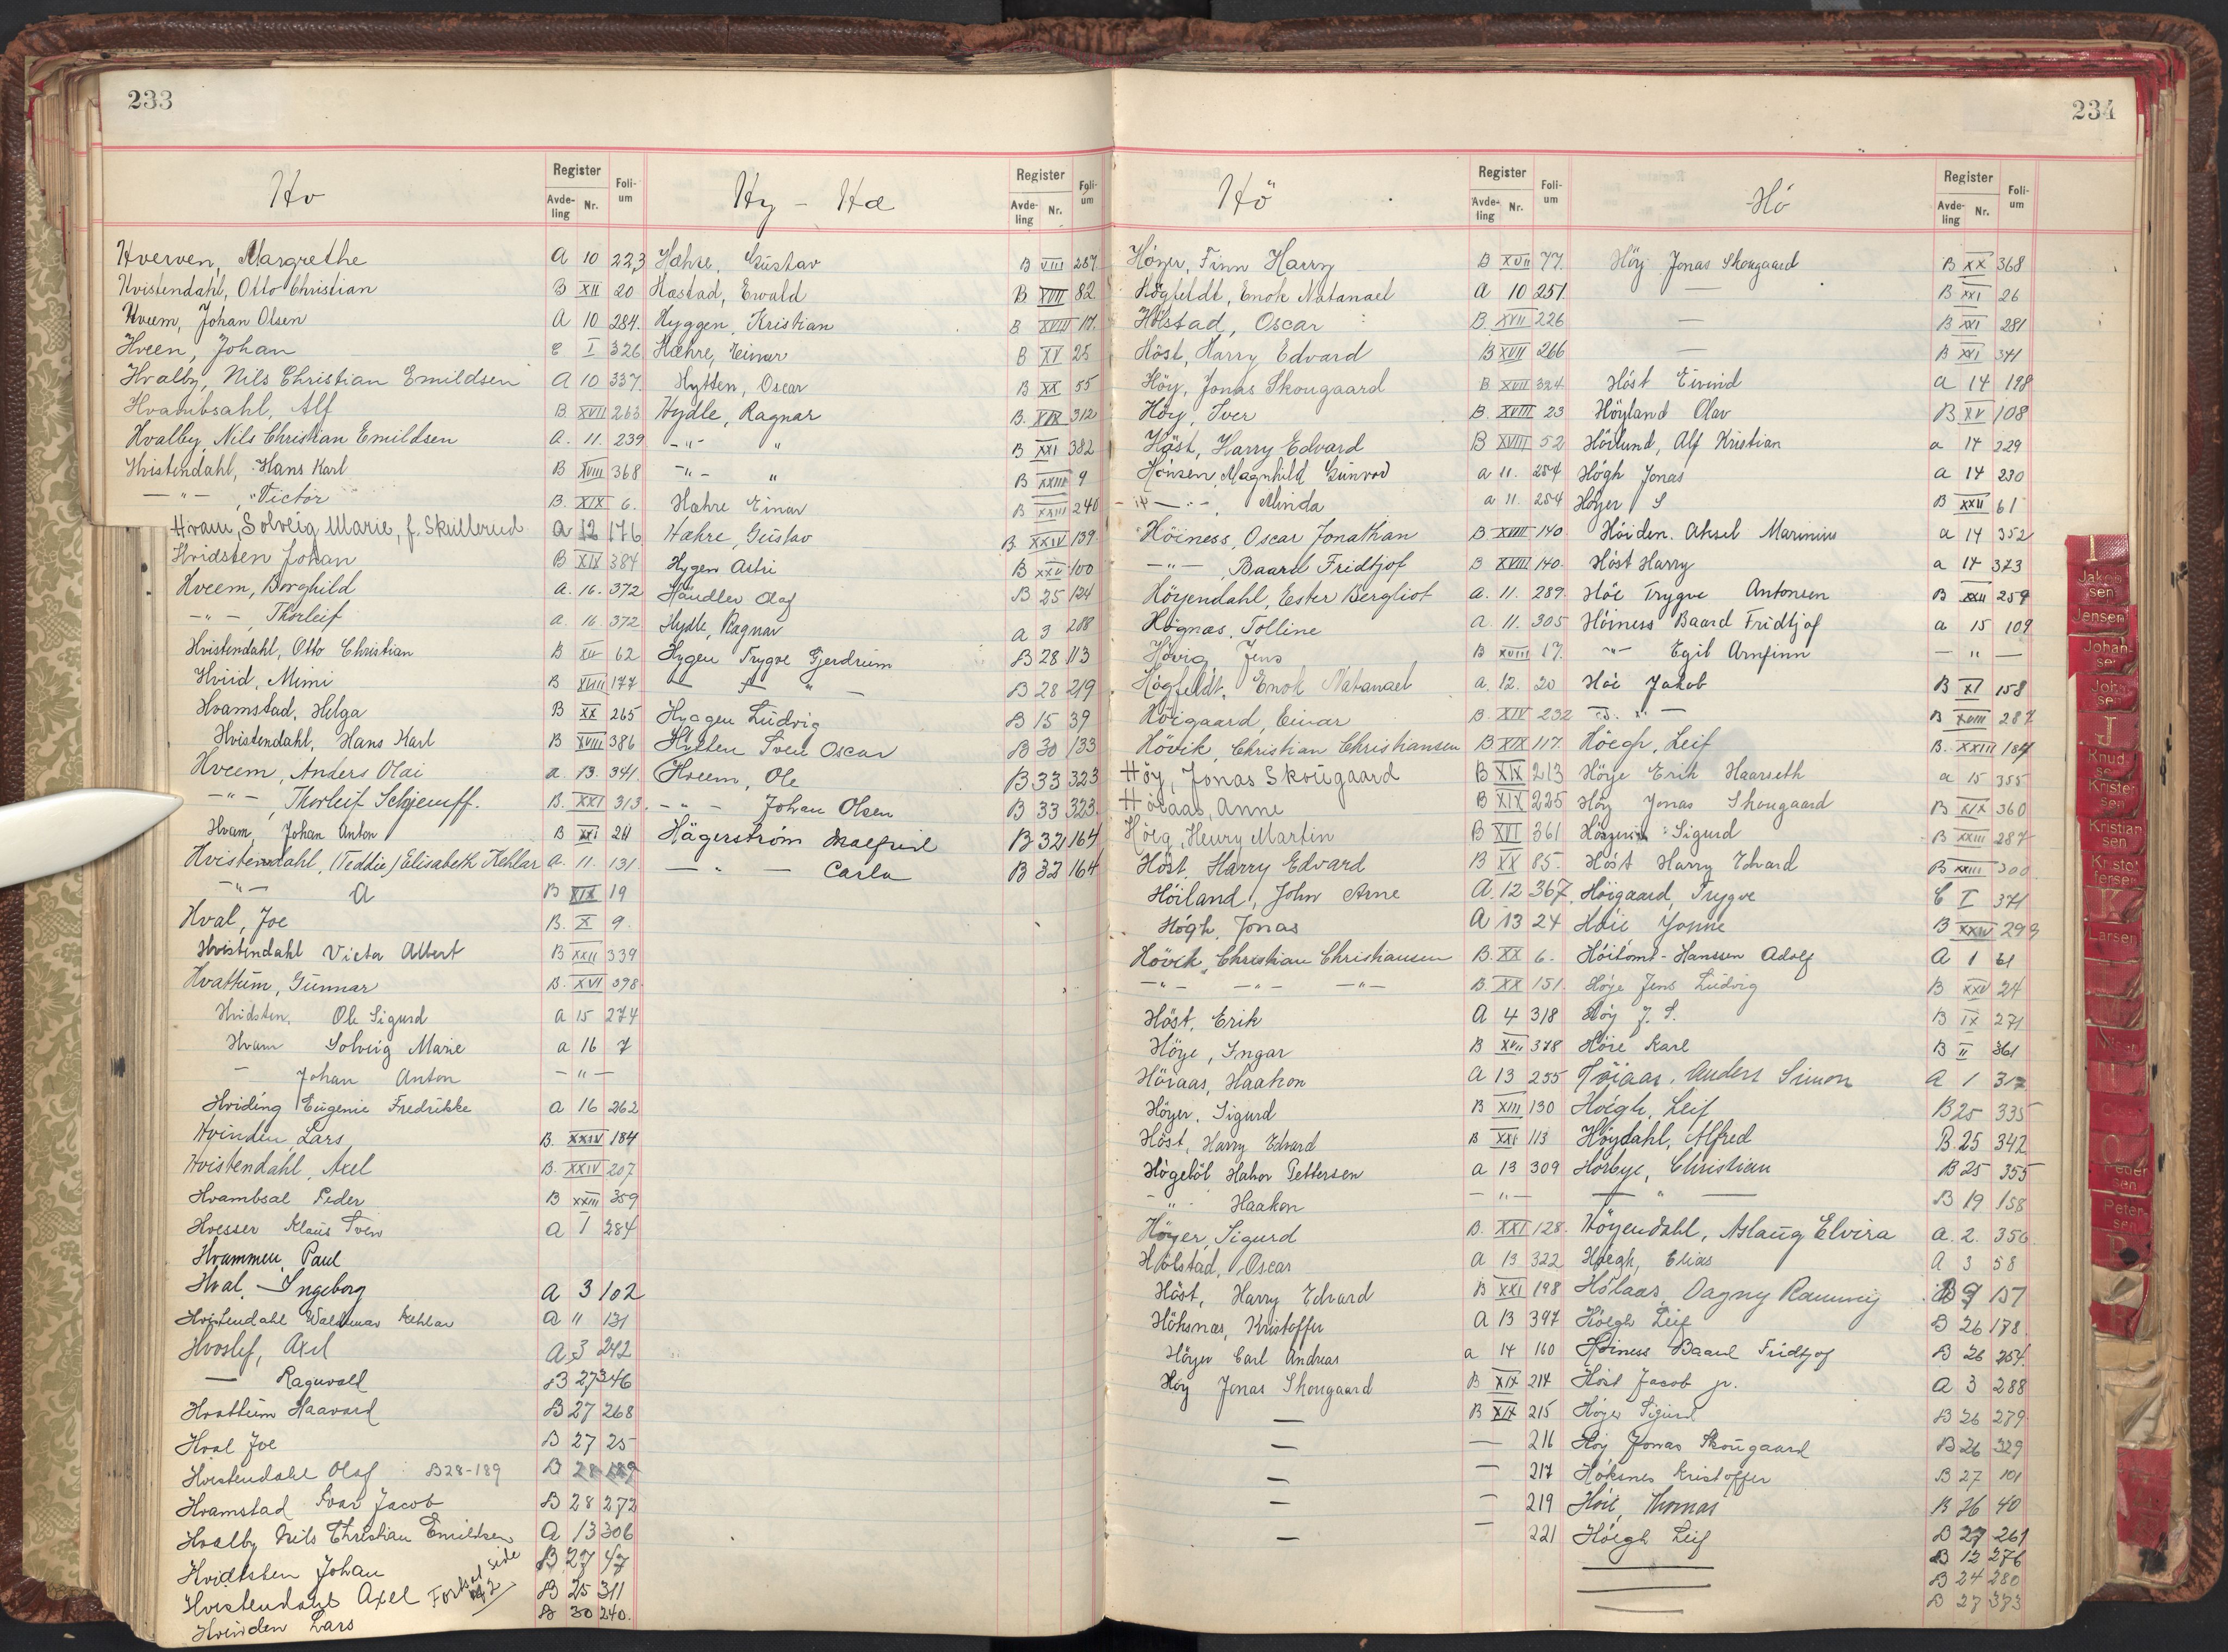 233
Hv
Register
Avde-ling Nr.
Foli-um
Hverven, Margrethe A 10 223
Hvistendahl, Otto Christian B XII 20
Hveem, Johan Olsen A 10 284.
Hveen, Johan C I 326
Hvalby, Nils Christian Emildsen A 10 337.
Hvambsahl, Alf B XVII 263
Hvalby, Nils Christian Emildsen A. 11. 239
Hvistendahl, Hans Karl B XVIII 368
—"— , Victor B. XIX 6.
Hvam, Solveig Marie, f. Skullerud A 12 176
Hvidsten Johan B XIX 384
Hveem, Borghild a. 16. 372
—"—, Thorleif a. 16 372
Hvistendahl, Otto Christian B XII 62
Hviid, Mimi B XVIII 177
Hvamstad, Helga B XX 265
Hvistendahl, Hans Karl B XVIII 386
Hveem, Anders Olai a. 13. 341.
—"—, Thorleif B. XXI 313.
Hvam, Johan Anton B XXI 211
Hvistendahl, (Teddie) Elisabeth Kehlar a. 11. 131
—"— A B XIX 19
Hval, Joe B. X 9.
Hvistendahl Victor Albert B XXII 339
Hvattum, Gunnar B. XVI 398.
Hvidsten, Ole Sigurd a 15 274
Hvam Solveig Marie a 16 7
— Johan Anton — " —
Hviding Eugenie Fredrikke a 16 262
Hvinden Lars, B. XXIV 184
Hvistendahl, Axel B. XXIV 207
Hvambsal Peder B XXIII 359
Hvesser Klaus Sven a I 284
Hvammen, Paul
Hval, Ingeborg A 3 102
Hvistendahl Waldemar Kehlar a 11 131
Hvoslef, Axel A 3 242
— Ragnvald B 27 346
Hvattum Haavard B 27 268
Hval Joe B 27 25
Hvistendahl Olaf B28-189 B 28 189
Hvamstad Ivar Jacob B 28 272
Hvalby Nils Christian Emildsen A 13 306
Hvidtsten Johan B 27 47
Hvistendahl Axel B 25 311
Hvinden Lars B 30 240.
Forts. side
Hy – Hæ
Register
Avde-ling Nr.
Foli-um
Hæhre, Gustav B VIII 287.
Hæstad, Ewald B. XVII 82.
Hyggen, Kristian B XVIII 17.
Hæhre, Einar B XV 25
Hytten, Oscar B XX 55
Hydle, Ragnar B. XIX 312
—"— " B XXI 382
—"— " B XXIII 9
Hæhre Einar B XXIII 240
Hæhre, Gustav B. XXIV 139
Hygen Astri B XXV 100
Händler Olaf B 25 124
Hydle, Ragnar a 3 288
Hygen Trygve Gjerdrum B 28 113
— " — B 28 219
Hyggen Ludvig B 15 39
Hytten Sven Oscar B 30 133
Hveem, Ole B 33 323
—"— Johan Olsen B 33 323.
Hägerström B 32 164
— " — Carla B 32 164
234
Hö
Register
Avde-ling Nr.
Foli-um
Höyer, Finn Harry B XVII 77.
Högfeldt, Enok Natanael A 10 251
Hölstad, Oscar B. XVII 226
Höst, Harry Edvard B XVII 266
Höy, Jonas Skougaard B XVII 324
Höy, Iver B. XVIII 23
Höst, Harry Edvard B XVIII 52
Hönsen, Magnhild Gunvor a 11. 254
—"—, Minda a 11. 254
Höiness, Oscar Jonathan B XVIII 140
—"—, Baard Fridtjof B XVIII 140.
Höyendahl, Ester Bergliot a. 11. 289
Högnæs, Tolline a. 11. 305
Hövig, Jens B XVIII 17.
Högfeldt, Enok Natanael a. 12. 20
Höigaard, Einar B. XIV 232
Hövik, Christian Christiansen B XIX 117.
Höy, Jonas Skougaard B XIX 213
Hölaas, Anne B XIX 225
Höeg, Henry Martin B XVI 361
Höst, Harry Edvard B XX 85.
Höiland, John Arne A. 12 367.
Högh, Jonas A 13 24
Hövik, Christian Christiansen B. XX 6.
—"— —"— —"— B. XX 151.
Höst, Erik A 4 318
Höye, Ingar B XVII 378
Höraas, Haakon A 13 255
Höyer, Sigurd B XIII 130
Höst, Harry Edvard B XXI 113
Högetöl Halvor Pettersen a 13 309
— " Haakon — " —
Höyer, Sigurd B. XXI 128.
Hölstad, Oscar A 13 322
Höst, Harry Edvard B XXI 198
Höksnæs, Kristoffer A 13 397
Höyer Carl Andreas a 14 160
Höy Jonas Skougaard B XIX 214
— B XIX 215
— — 216
— — 217
— — 219
— — 221
Hö
Register
Avde-ling Nr.
Foli-um
Höy Jonas Skougaard B XX 368
— B XXI 26
— B XXI 281
— B XXI 341
Höst Eivind a 14 198
Höyland Olav B XV 108
Hörlund, Alf Kristian a 14 229
Högh Jonas a 14 230
Höyer S B XXII 61
Höiden, Aksel Marinius a 14 352
Höst Harry a 14 373
Höie Trygve Antonsen B XXII 259
Höiness Baard Fridtjof a 15 109
—"— Egil Arnfinn — " —
Höie Jakob B XI 158
B XVIII 287
Höegh, Leif B. XXIII 184
Höye Erik Haarseth a 15 355
Höy Jonas Skougaard B XIX 360
Sigurd B XXIII 287
Höst Harry Edvard B XXIII 300
Höigaard, Trygve C I 371
Höie Jonne B XXIV 293
Höitomt-Hanssen Adolf A 1 61
Höye Jens Ludvig B XXV 24
Höy J. S. B IX 271
Höie Karl B II 361
Anders Simon A 1 317
Höegh, Leif B 25 335
Höydahl, Alfred B. 25 342
Hörbye, Christian B 25 355
— " — B 19 158
Höyendahl, Aslaug Elvira a. 2. 356
Höegh, Elias A 3 58
Hölaas, Dagny B 9 157
Höegh Leif B 26 178
Höiness Baard Fridtjof B 26 254.
Höst Jacob jr. A 3 288
Höyer Sigurd B 26 279
Höy Jonas Skougaard B 26 329
Höksnes Kristoffer B 27 101
Höie, Thomas B 26 40
Höegh Leif B 27 261
— B 12 276
— B 24 280
— B 27 373
Jakob sen
Jensen
Johan- sen
John sen
J
Knud- sen
Krister sen
Kristian sen
Kristof fersen
K
Larsen
L
O
Peder sen
Peter- sen
P